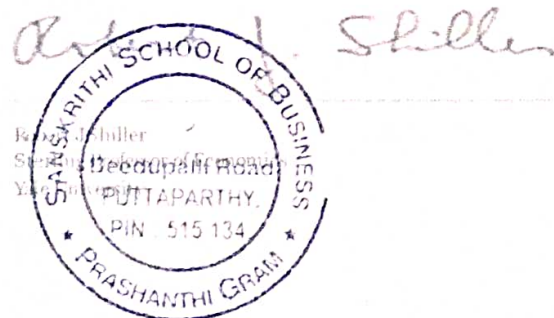 Robert J. Shiller
Robert J Shiller
Sterling Professor of Economics
Yale University
SANSKRITHI SCHOOL OF BUSINESS
Beedupalli Road
PUTTAPARTHY.
PIN : 515 134
★ PRASHANTHI GRAM ★